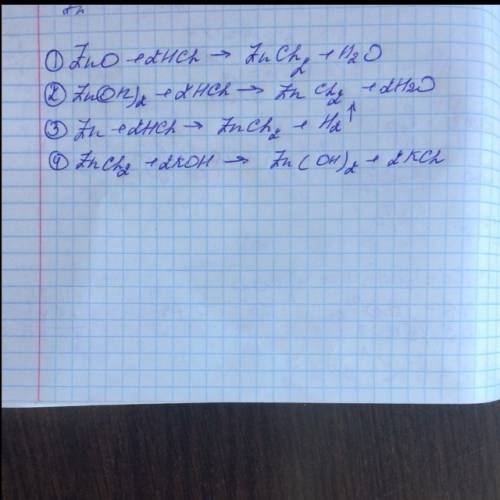 ① ZnO + 2HCl → ZnCl₂ + H₂O
② Zn(OH)₂ + 2HCl → ZnCl₂ + 2H₂O
③ Zn + 2HCl → ZnCl₂ + H₂↑
④ ZnCl₂ + 2KOH → Zn(OH)₂ + 2KCl